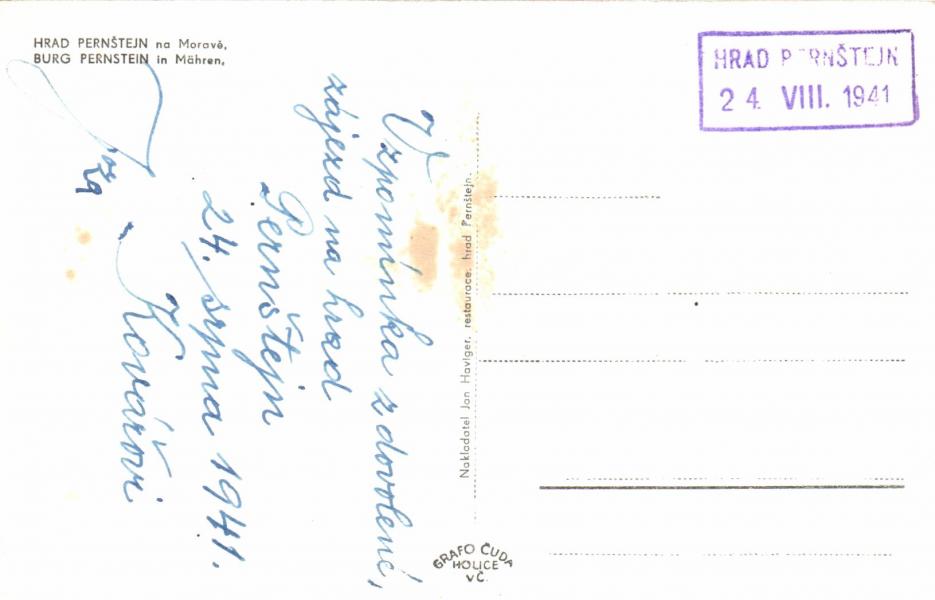 HRAD PERNŠTEJN na Moravě,
BURG PERNSTEIN in Mähren,
HRAD PERNŠTEJN
24. VIII. 1941
Vzpomínka z dovolené,
zájezd na hrad
Pernštejn
24. srpna 1941.
Kovářovi
Nakladatel Jan Havlger, restaurace, hrad Pernštejn.
GRAFO ČUDA
HOLICE
VČ.